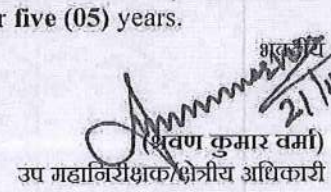 r five (05) years.
भवदीय
21/1
(श्रवण कुमार वर्मा)
उप महानिरीक्षक/क्षेत्रीय अधिकारी